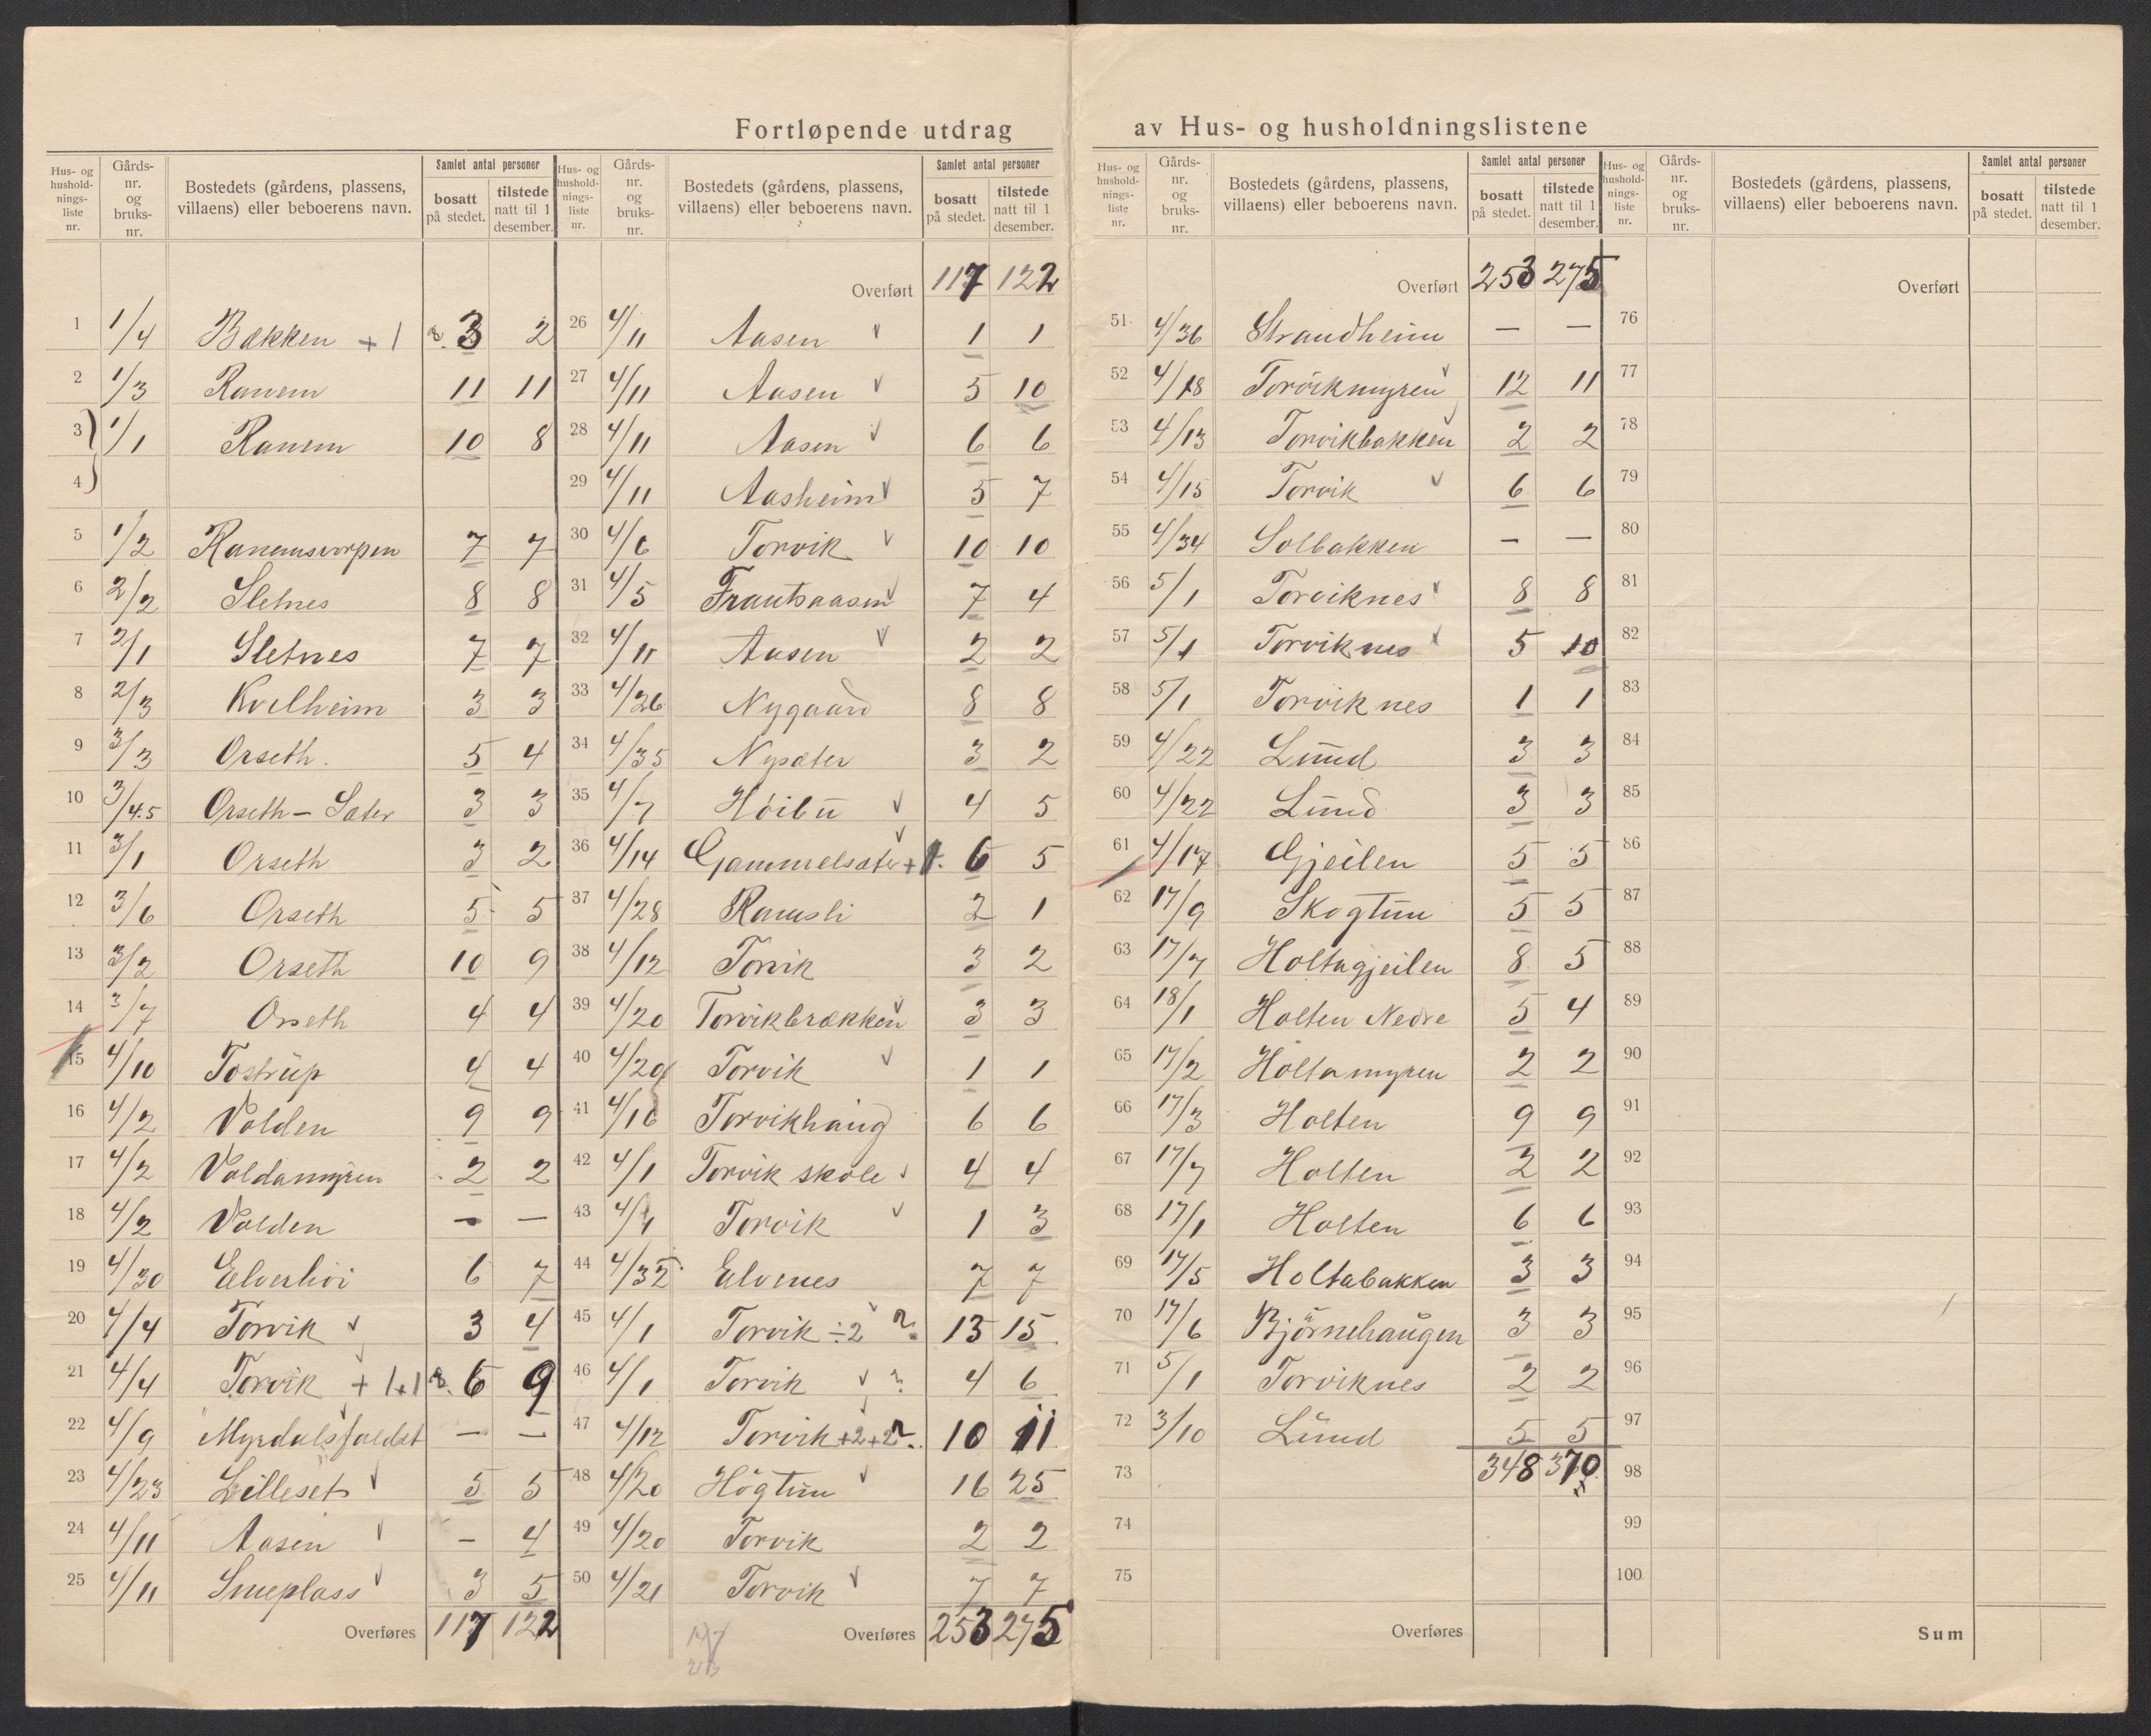 Fortløpende utdrag av Hus- og husholdningslistene
Hus- og husholdningsliste nr. | Gårdsnr. og bruksnr. | Bostedets (gårdens, plassens, villaens) eller beboerens navn. | Samlet antal personer | bosatt på stedet. | tilstede natt til 1 desember.
1 1/4 Bækken + 1 3 2
2 1/3 Ranem 11 11
3 1/1 Ranem 10 8
4
5 1/2 Ranemsvorpen 7 7
6 2/2 Sletnes 8 8
7 2/1 Sletnes 7 7
8 2/3 Kvelheim 3 3
9 3/3 Orseth. 5 4
10 3/4.5 Orseth - Sæter 3 3
11 3/1 Orseth 3 2
12 3/6 Orseth 5 5
13 3/2 Orseth 10 9
14 3/7 Orseth 4 4
15 4/10 Tostrup 4 4
16 4/2 Volden 9 9
17 4/2 Voldamyren 2 2
18 4/2 Volden – –
19 4/30 Elverhöi 6 7
20 4/4 Torvik v 3 4
21 4/4 Torvik + 1+1 6 9
22 4/9 Myrdalsfoldet – –
23 4/23 Lilleset v 5 5
24 4/11 Aasen v – 4
25 4/11 Smeplass v 3 5
Overføres 117 122
Hus- og husholdningsliste nr. | Gårdsnr. og bruksnr. | Bostedets (gårdens, plassens, villaens) eller beboerens navn. | Samlet antal personer | bosatt på stedet. | tilstede natt til 1 desember.
Overført 117 122
26 4/11 Aasen v 1 1
27 4/11 Aasen v 5 10
28 4/11 Aasen v 6 6
29 4/11 Aasheim v 5 7
30 4/6 Torvik v 10 10
31 4/5 Frautsaasen v 7 4
32 4/11 Aasen v 2 2
33 4/26 Nygaard 8 8
34 4/35 Nysæter 3 2
35 4/7 Höibu v 4 5
36 4/14 Gammelsæter + 1. 6 5
37 4/28 Ramsli 2 1
38 4/12 Torvik 3 2
39 4/20 Torvikbrækken v 3 3
40 4/20 Torvik v 1 1
41 4/16 Torvikhaug 6 6
42 4/1 Torvik skole v 4 4
43 4/1 Torvik v 1 3
44 4/32 Elvenes 7 7
45 4/1 Torvik ÷2 v ?. 13 15
46 4/1 Torvik v ? 4 6
47 4/12 Torvik +2+2 10 11
48 4/20 Högtun v 16 25
49 4/20 Torvik 2 2
50 4/21 Torvik v 7 7
Overføres 253 275
Hus- og husholdningsliste nr. | Gårdsnr. og bruksnr. | Bostedets (gårdens, plassens, villaens) eller beboerens navn. | Samlet antal personer | bosatt på stedet. | tilstede natt til 1 desember.
Overført 253 275
51 4/36 Strandheim – –
52 4/18 Torvikmyren v 12 11
53 4/13 Torvikbakken 2 2
54 4/15 Torvik v 6 6
55 4/34 Solbakken – –
56 5/1 Torviknes v 8 8
57 5/1 Torviknes v 5 10
58 5/1 Torviknes 1 1
59 4/22 Lund 3 3
60 4/22 Lund 3 3
61 4/17 Gjeilen 5 5
62 17/9 Skogtun 5 5
63 17/7 Holtagjeilen 8 5
64 18/1 Holten Nedre 5 4
65 17/2 Holtamyren 2 2
66 17/3 Holten 9 9
67 17/7 Holten 2 2
68 17/1 Holten 6 6
69 17/5 Holtabakken 3 3
70 17/6 Björnehaugen 3 3
71 5/1 Torviknes 2 2
72 3/10 Lund 5 5
73 348 370
74
75
Overføres
Hus- og husholdningsliste nr. | Gårdsnr. og bruksnr. | Bostedets (gårdens, plassens, villaens) eller beboerens navn. | Samlet antal personer | bosatt på stedet. | tilstede natt til 1 desember.
Overført
76
77
78
79
80
81
82
83
84
85
86
87
88
89
90
91
92
93
94
95
96
97
98
99
100
Sum